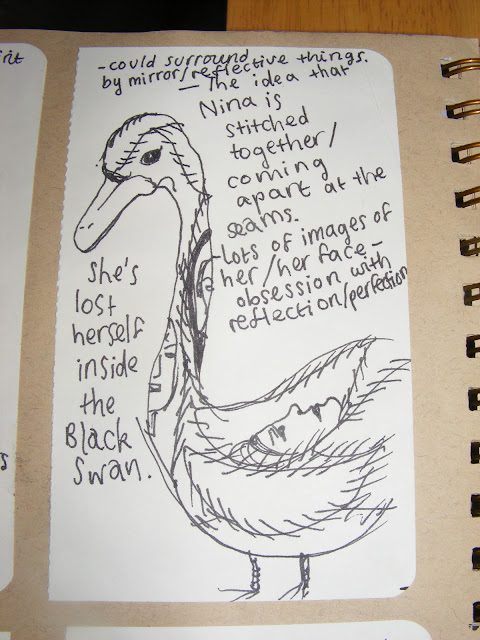 -could surround
by mirror/reflective things.
— The idea that
Nina is
stitched
together/
coming
apart at the
seams.
-lots of images of
her/her face-
obsession with
reflection/perfection
she's
lost
herself
inside
the
Black
Swan.